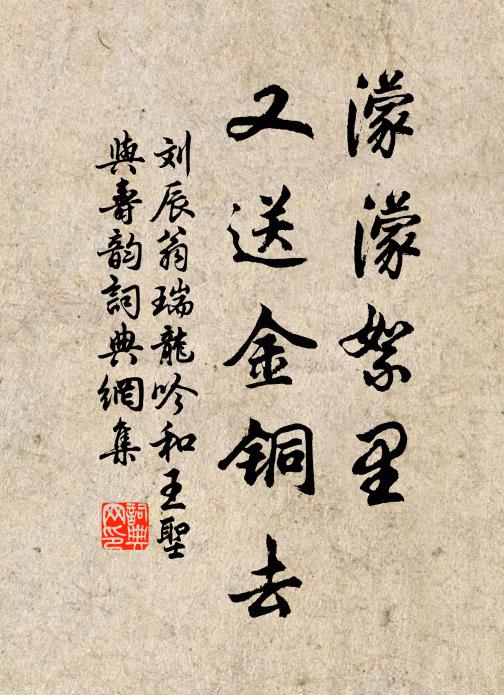 濛濛絮里
又送金铜去
刘辰翁瑞龍吟和王聖
與壽韵詞典網集
詞典
网印